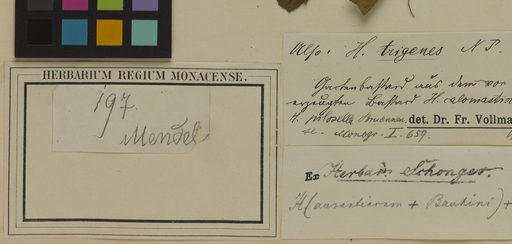 HERBARIUM REGIUM MONACENSE.
197.
Mendel
Also. H. trigenes N. P.
Gartenbastard aus dem von
erzeugten Bastard H.
H. Pilosella det. Dr. Fr. Vollma
Monogr. I. 659.
Ex Herbario Schonger.
H (aurantiacum + Bauhini) +